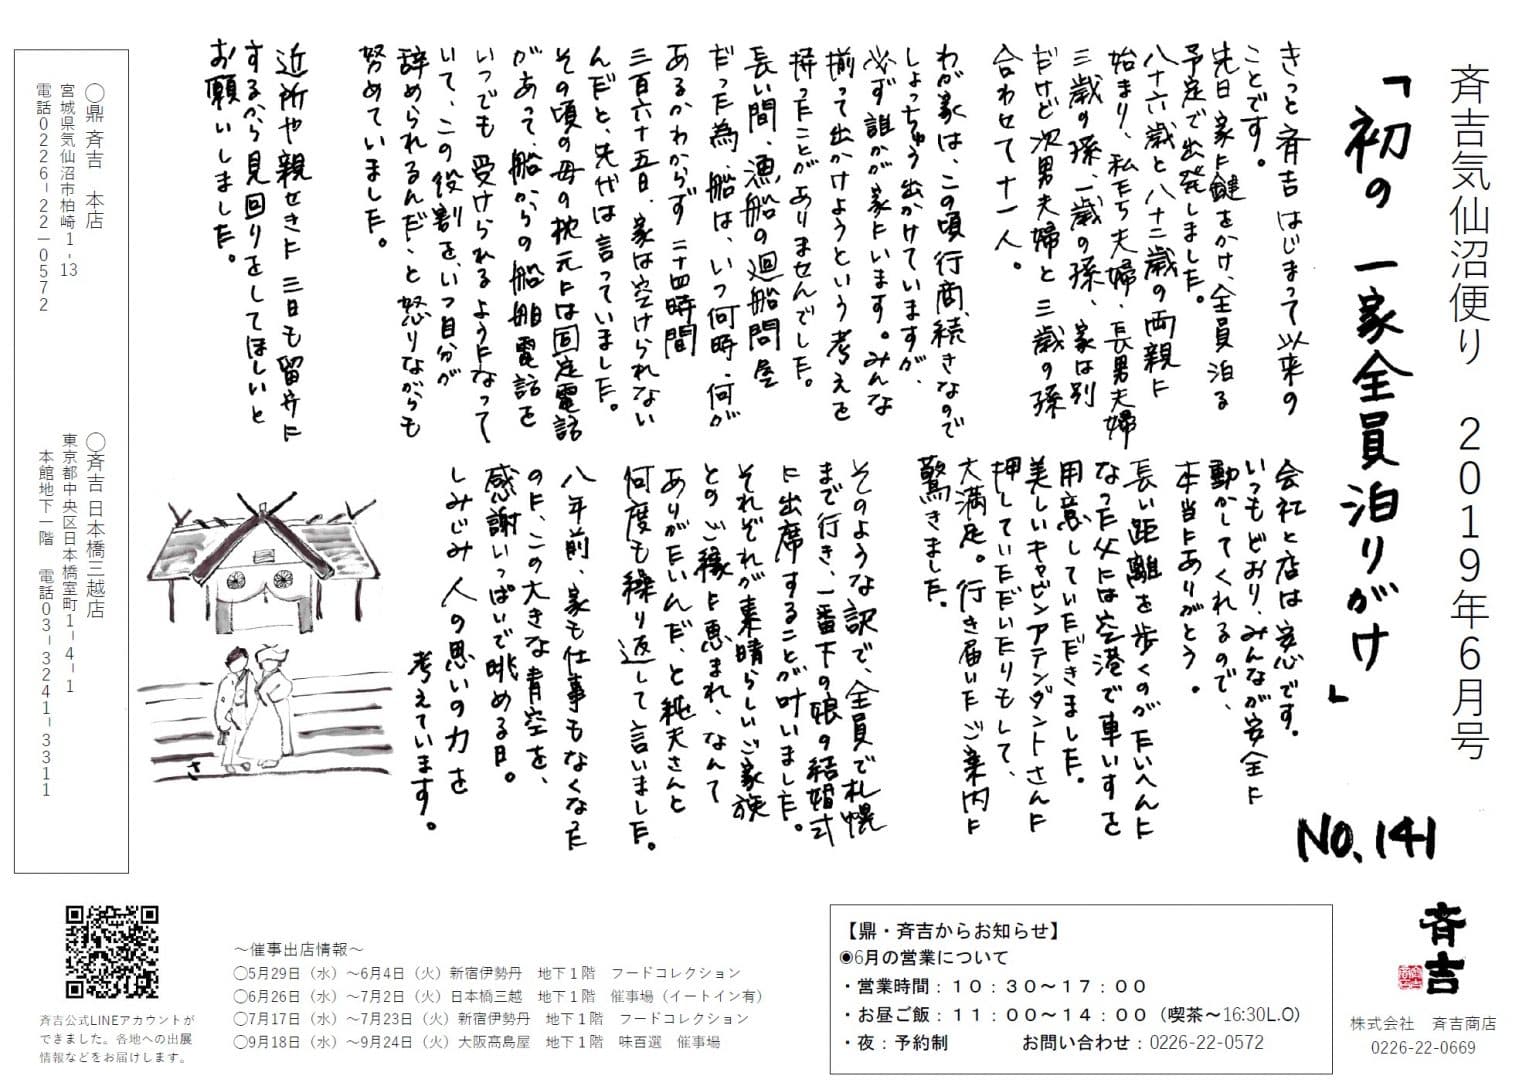 斉吉気仙沼便り　2019年6月号
No.141
「初の一家全員泊りがけ」
きっと斉吉はじまって以来の
ことです。
先日家に鍵をかけ、全員泊る
予定で出発しました。
八十六歳と八十二歳の両親に
始まり、私たち夫婦・長男夫婦
三歳の孫、一歳の孫、家は別
だけど次男夫婦と三歳の孫
合わせて十一人。
わが家は、この頃行商続きなので
しょっちゅう出かけていますが、
必ず誰かが家にいます。みんな
揃って出かけようという考えを
持ったことがありませんでした。
長い間、漁船の廻船問屋
だった為、船は、いつ何時、何が
あるかわからず二十四時間
三百六十五日、家は空けられない
んだと、先代は言っていました。
その頃の母の枕元には固定電話
があって、船からの船舶電話を
いつでも受けられるようになって
いて、この役割を、いつ自分が
辞められるんだ、と怒りながらも
努めていました。
近所や親せきに三日も留守に
するから見回りをしてほしいと
お願いしました。
会社と店は安心です。
いつもどおり、みんなが安全に
動かしてくれるので、
本当にありがとう。
長い距離を歩くのがたいへんに
なった父には空港で車いすを
用意していただきました。
美しいキャビンアテンダントさんに
押していただいたりもして、
大満足。行き届いたご案内に
驚きました。
そのような訳で、全員で札幌
まで行き、一番下の娘の結婚式
に出席することが叶いました。
それぞれが素晴らしいご家族
とのご縁に恵まれ、なんて
ありがたいんだ、と純夫さんと
何度も繰り返して言いました。
八年前、家も仕事もなくなった
のに、この大きな青空を、
感謝いっぱいで眺める日。
しみじみ人の思いの力を
考えています。
さ
◯鼎 斉吉　本店
宮城県気仙沼市柏崎1-13
電話0226-22-0572
◯斉吉日本橋三越店
東京都中央区日本橋室町1-4-1
本館地下一階　電話03-3241-3311
斉吉公式LINEアカウントが
できました。各地への出展
情報などをお届けします。
～催事出店情報～
◯5月29日（水）～6月4日（火）新宿伊勢丹　地下１階　フードコレクション
◯6月26日（水）～7月2日（火）日本橋三越　地下１階　催事場（イートイン有）
◯7月17日（水）～7月23日（火）新宿伊勢丹　地下１階　フードコレクション
◯9月18日（水）～9月24日（火）大阪髙島屋　地下１階　味百選　催事場
【鼎・斉吉からお知らせ】
◉6月の営業について
・営業時間：１０：３０～１７：００
・お昼ご飯：１１：００～１４：００（喫茶～16:30L.O）
・夜：予約制　お問い合わせ：0226-22-0572
斉吉
株式会社　斉吉商店
0226-22-0669